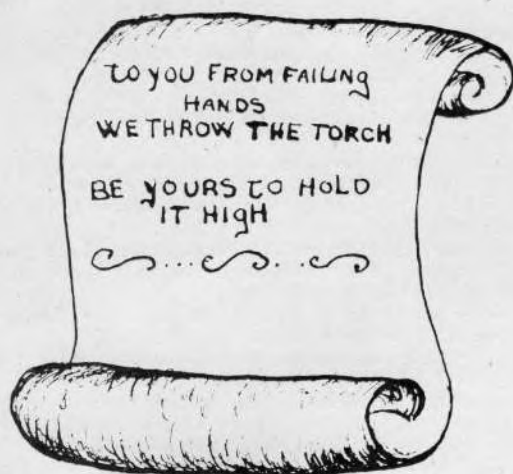 TO YOU FROM FAILING
HANDS
WE THROW THE TORCH
BE YOURS TO HOLD
IT HIGH